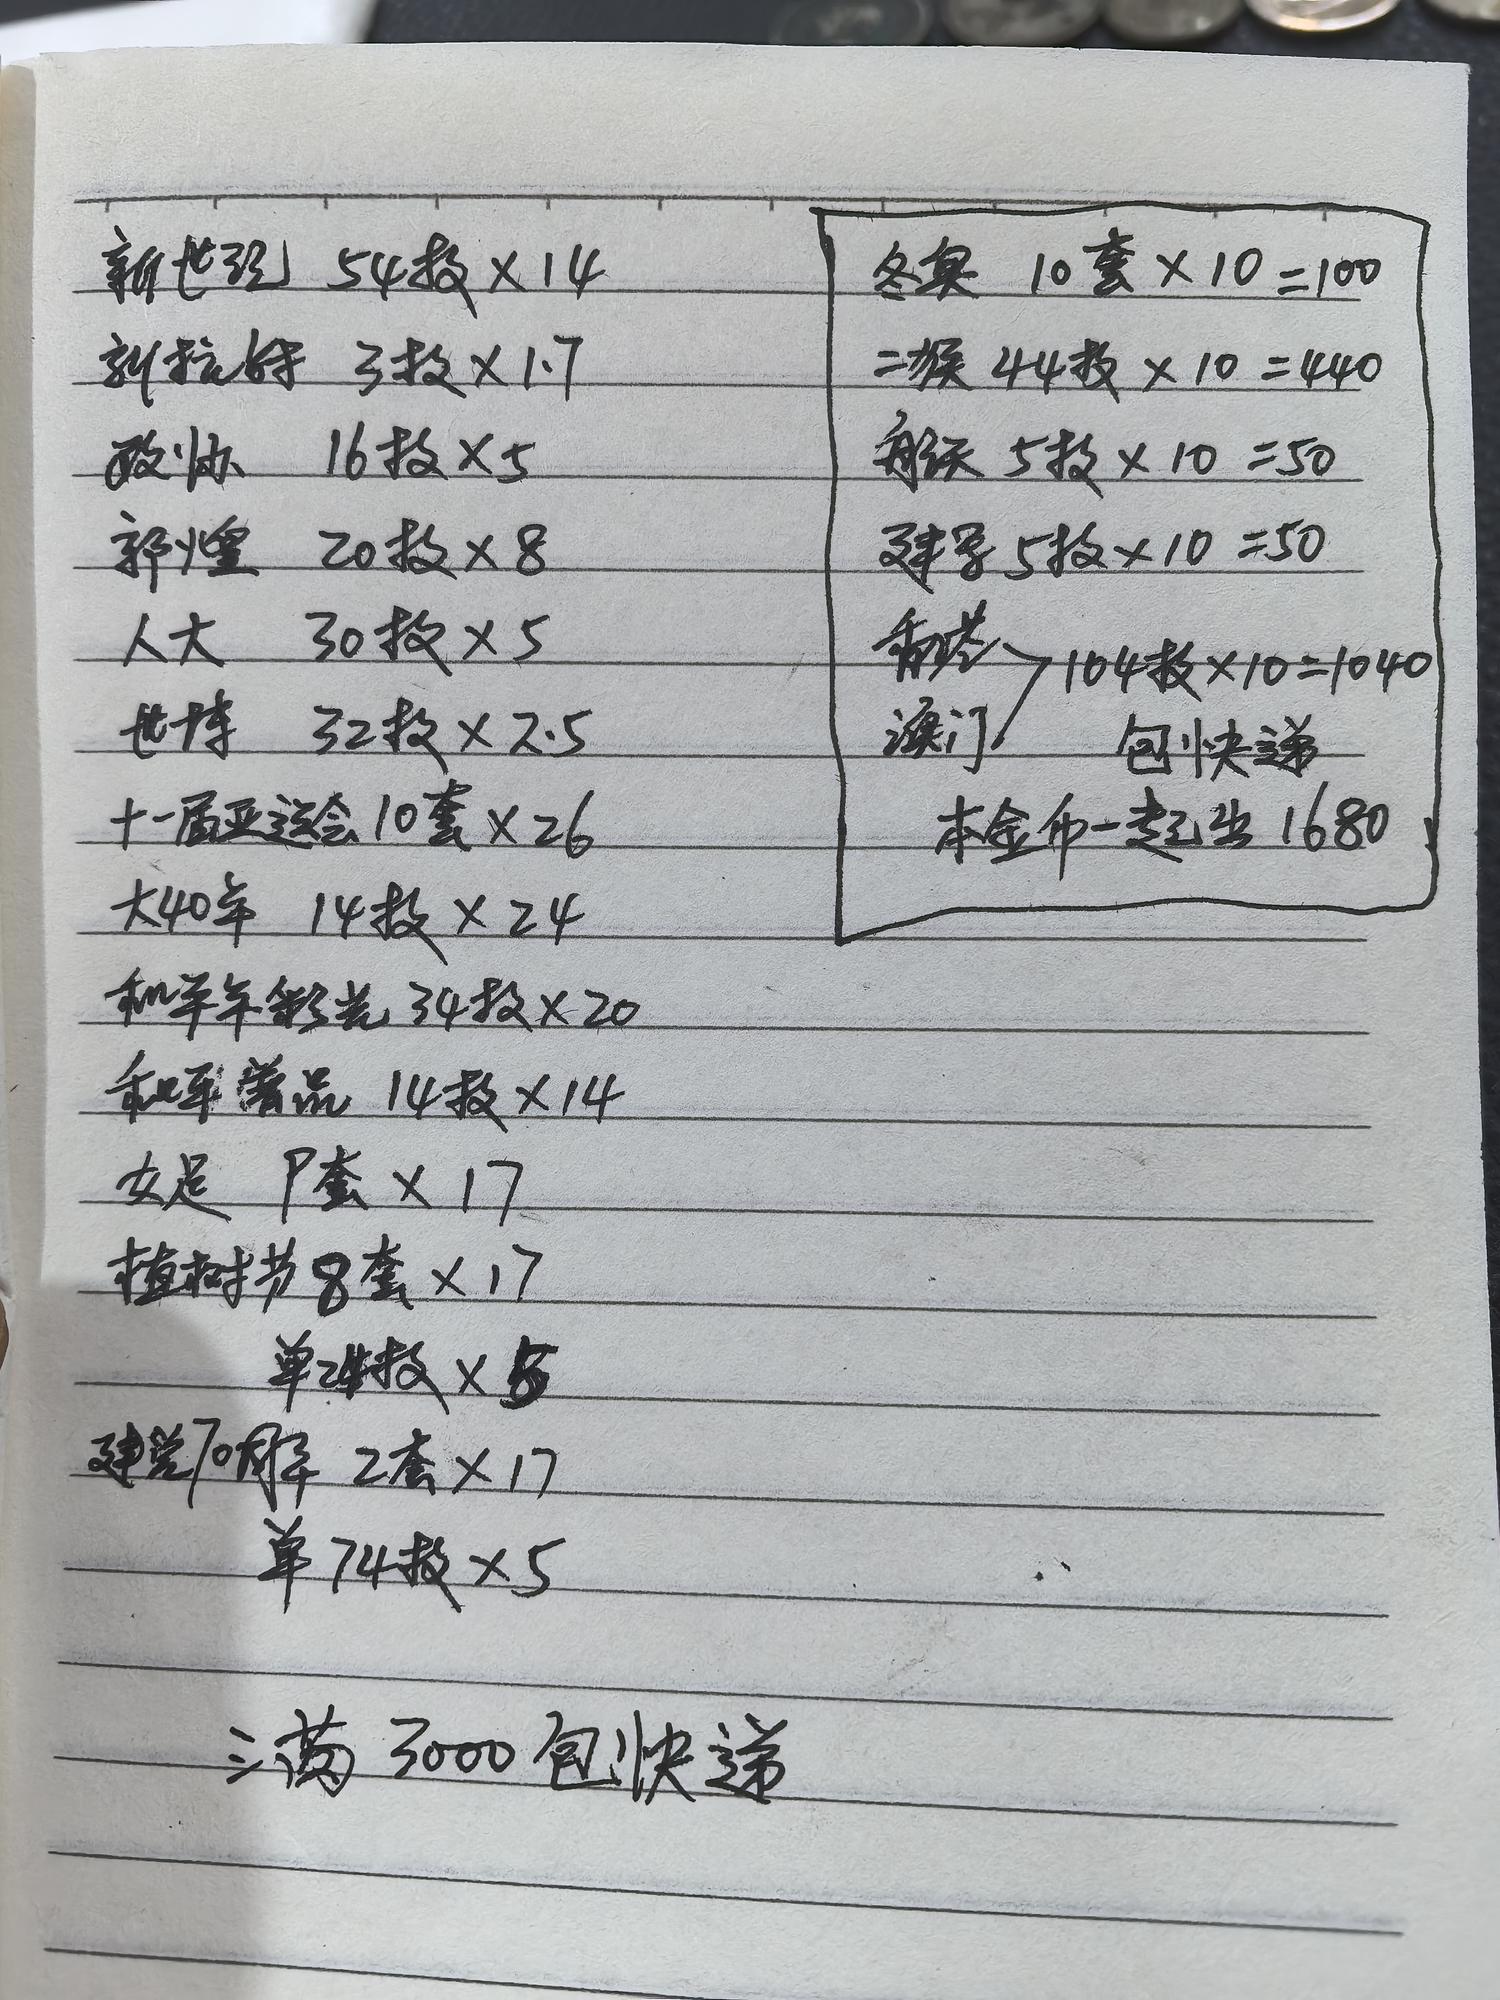 新世纪 54枚×14
新拉萨 3枚×1.7
政协 16枚×5
郭煌 20枚×8
人大 30枚×5
世博 32枚×2.5
十一届亚运会 10套×26
大40年 14枚×24
和平年彩光 34枚×20
和平普品 14枚×14
女足 套×17
植树节 8套×17
单24枚×5
建党70周年 2套×17
单74枚×5
满3000包快递
冬奥 10套×10=100
二猴 44枚×10=440
航天 5枚×10=50
建军 5枚×10=50
香港
澳门
104枚×10=1040
包快递
本金币一起出 1680